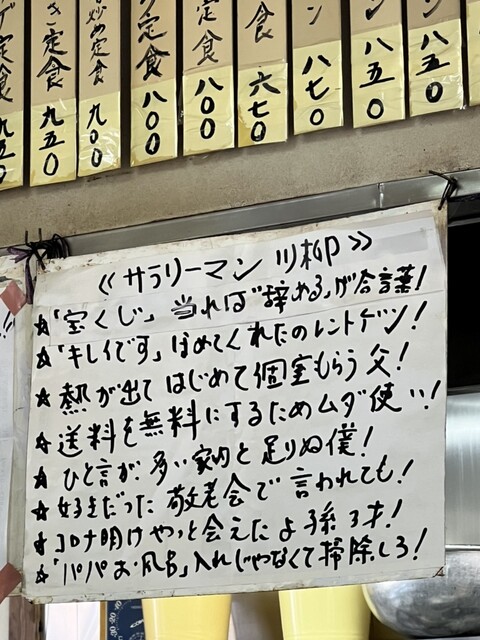 定食 九五〇
定食 九五〇
炒め定食 九〇〇
定食 八〇〇
定食 八〇〇
食 六七〇
ン 八七〇
ン 八五〇
ン 八五〇
《サラリーマン川柳》
☆「宝くじ」当れば"辞める"が合言葉!
☆「キレイです」ほめてくれたのレントゲン!
☆熱が出てはじめて個室もらう父!
☆送料を無料にするためムダ使い!
☆ひと言が多い家内と足りぬ僕!
☆好きだった敬老会で言われても!
☆コロナ明けやっと会えたよ孫3才!
☆「パパお風呂」入れじゃなくて掃除しろ!